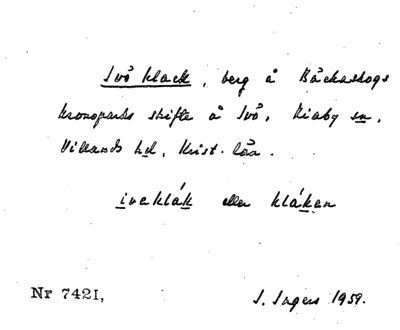 Ivö klack, berg å Bäckaskogs
kronoparks skifte å Ivö, Kiaby sn,
Villands hd, Krist. län.
ivaklák eller klákan
Nr 7421, I. Ingers 1959.